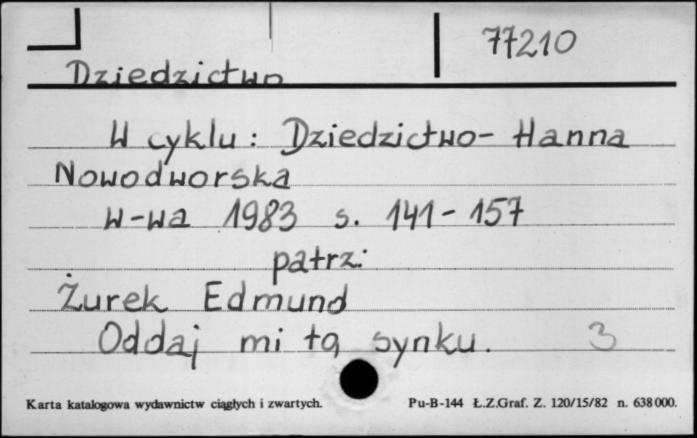 77210
Dziedzictwo
W cyklu: Dziedzictwo- Hanna
Nowodworska
W-wa 1983 s. 141-157
patrz:
Żurek Edmund
Oddaj mi tą synku. 3
Karta katalogowa wydawnictw ciągłych i zwartych. Pu-B-144 Ł.Z.Graf. Z. 120/15/82 n. 638000.